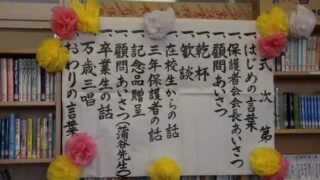 式次第
一はじめの言葉
一保護者会会長あいさつ
一顧問あいさつ
一乾杯
一歓談
一在校生からの話
一三年保護者の話
一記念品贈呈
一顧問あいさつ(蒲谷先生)
一卒業生の話
一万歳三唱
一おわりの言葉